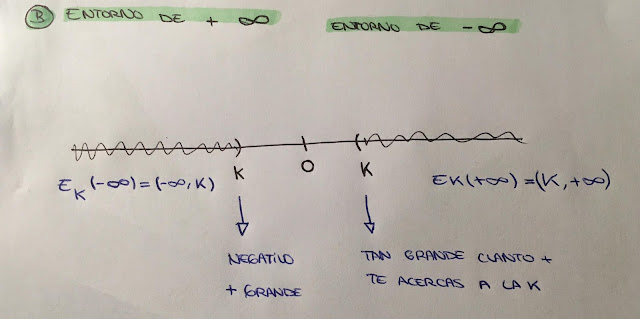 B ENTORNO DE + ∞
ENTORNO DE - ∞
K
O
K
E_K (-∞) = (-∞, K)
EK(+∞) = (K, +∞)
NEGATIVO
+ GRANDE
TAN GRANDE CUANTO +
TE ACERCAS A LA K